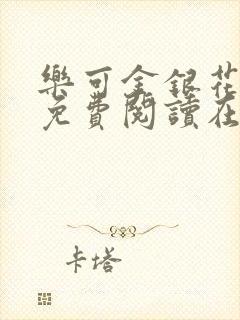 樂可金銀花
免費閱讀在
卡塔